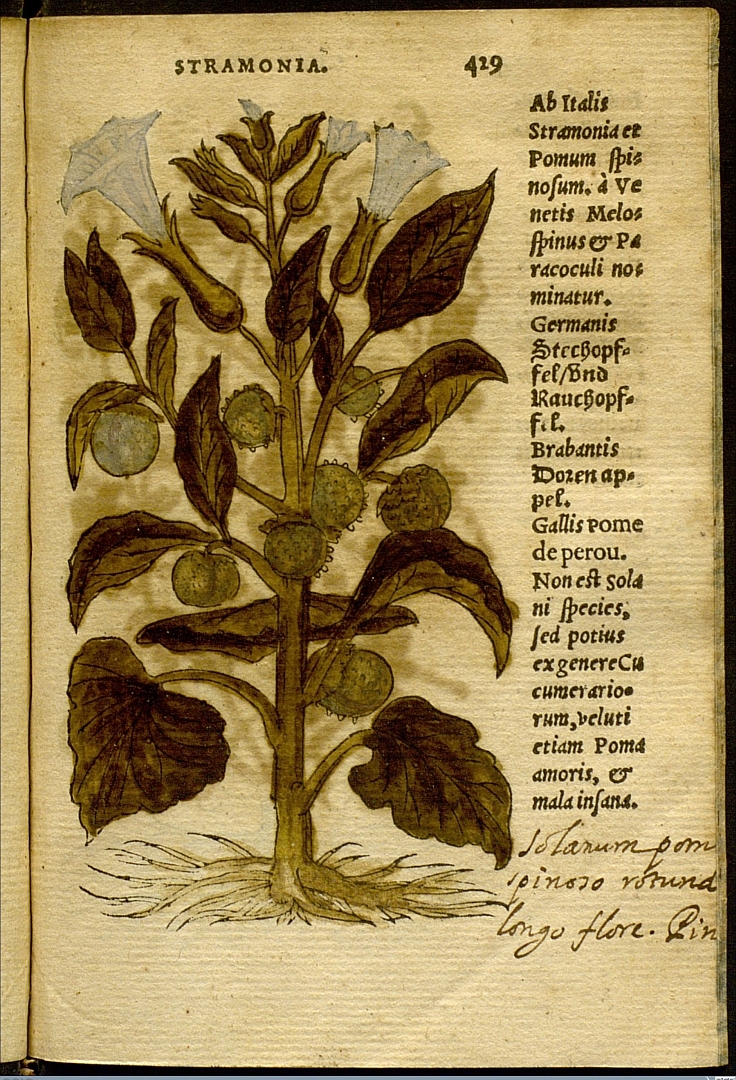 STRAMONIA. 429
Ab Italis
Stramonia et
Pomum spi-
nosum. à Ve
netis Melo-
spinus & Pa
racoculi no-
minatur.
Germanis
Stechopf-
fel/Vnd
Rauchopf-
fel.
Brabantis
Doren ap-
pel.
Gallis Pome
de perou.
Non est Sola
ni species,
sed potius
ex genere Cu
cumerario-
rum, veluti
etiam Poma
amoris, &
mala insana.
Solanum pom
spinoso rotund
longo flore. Pin